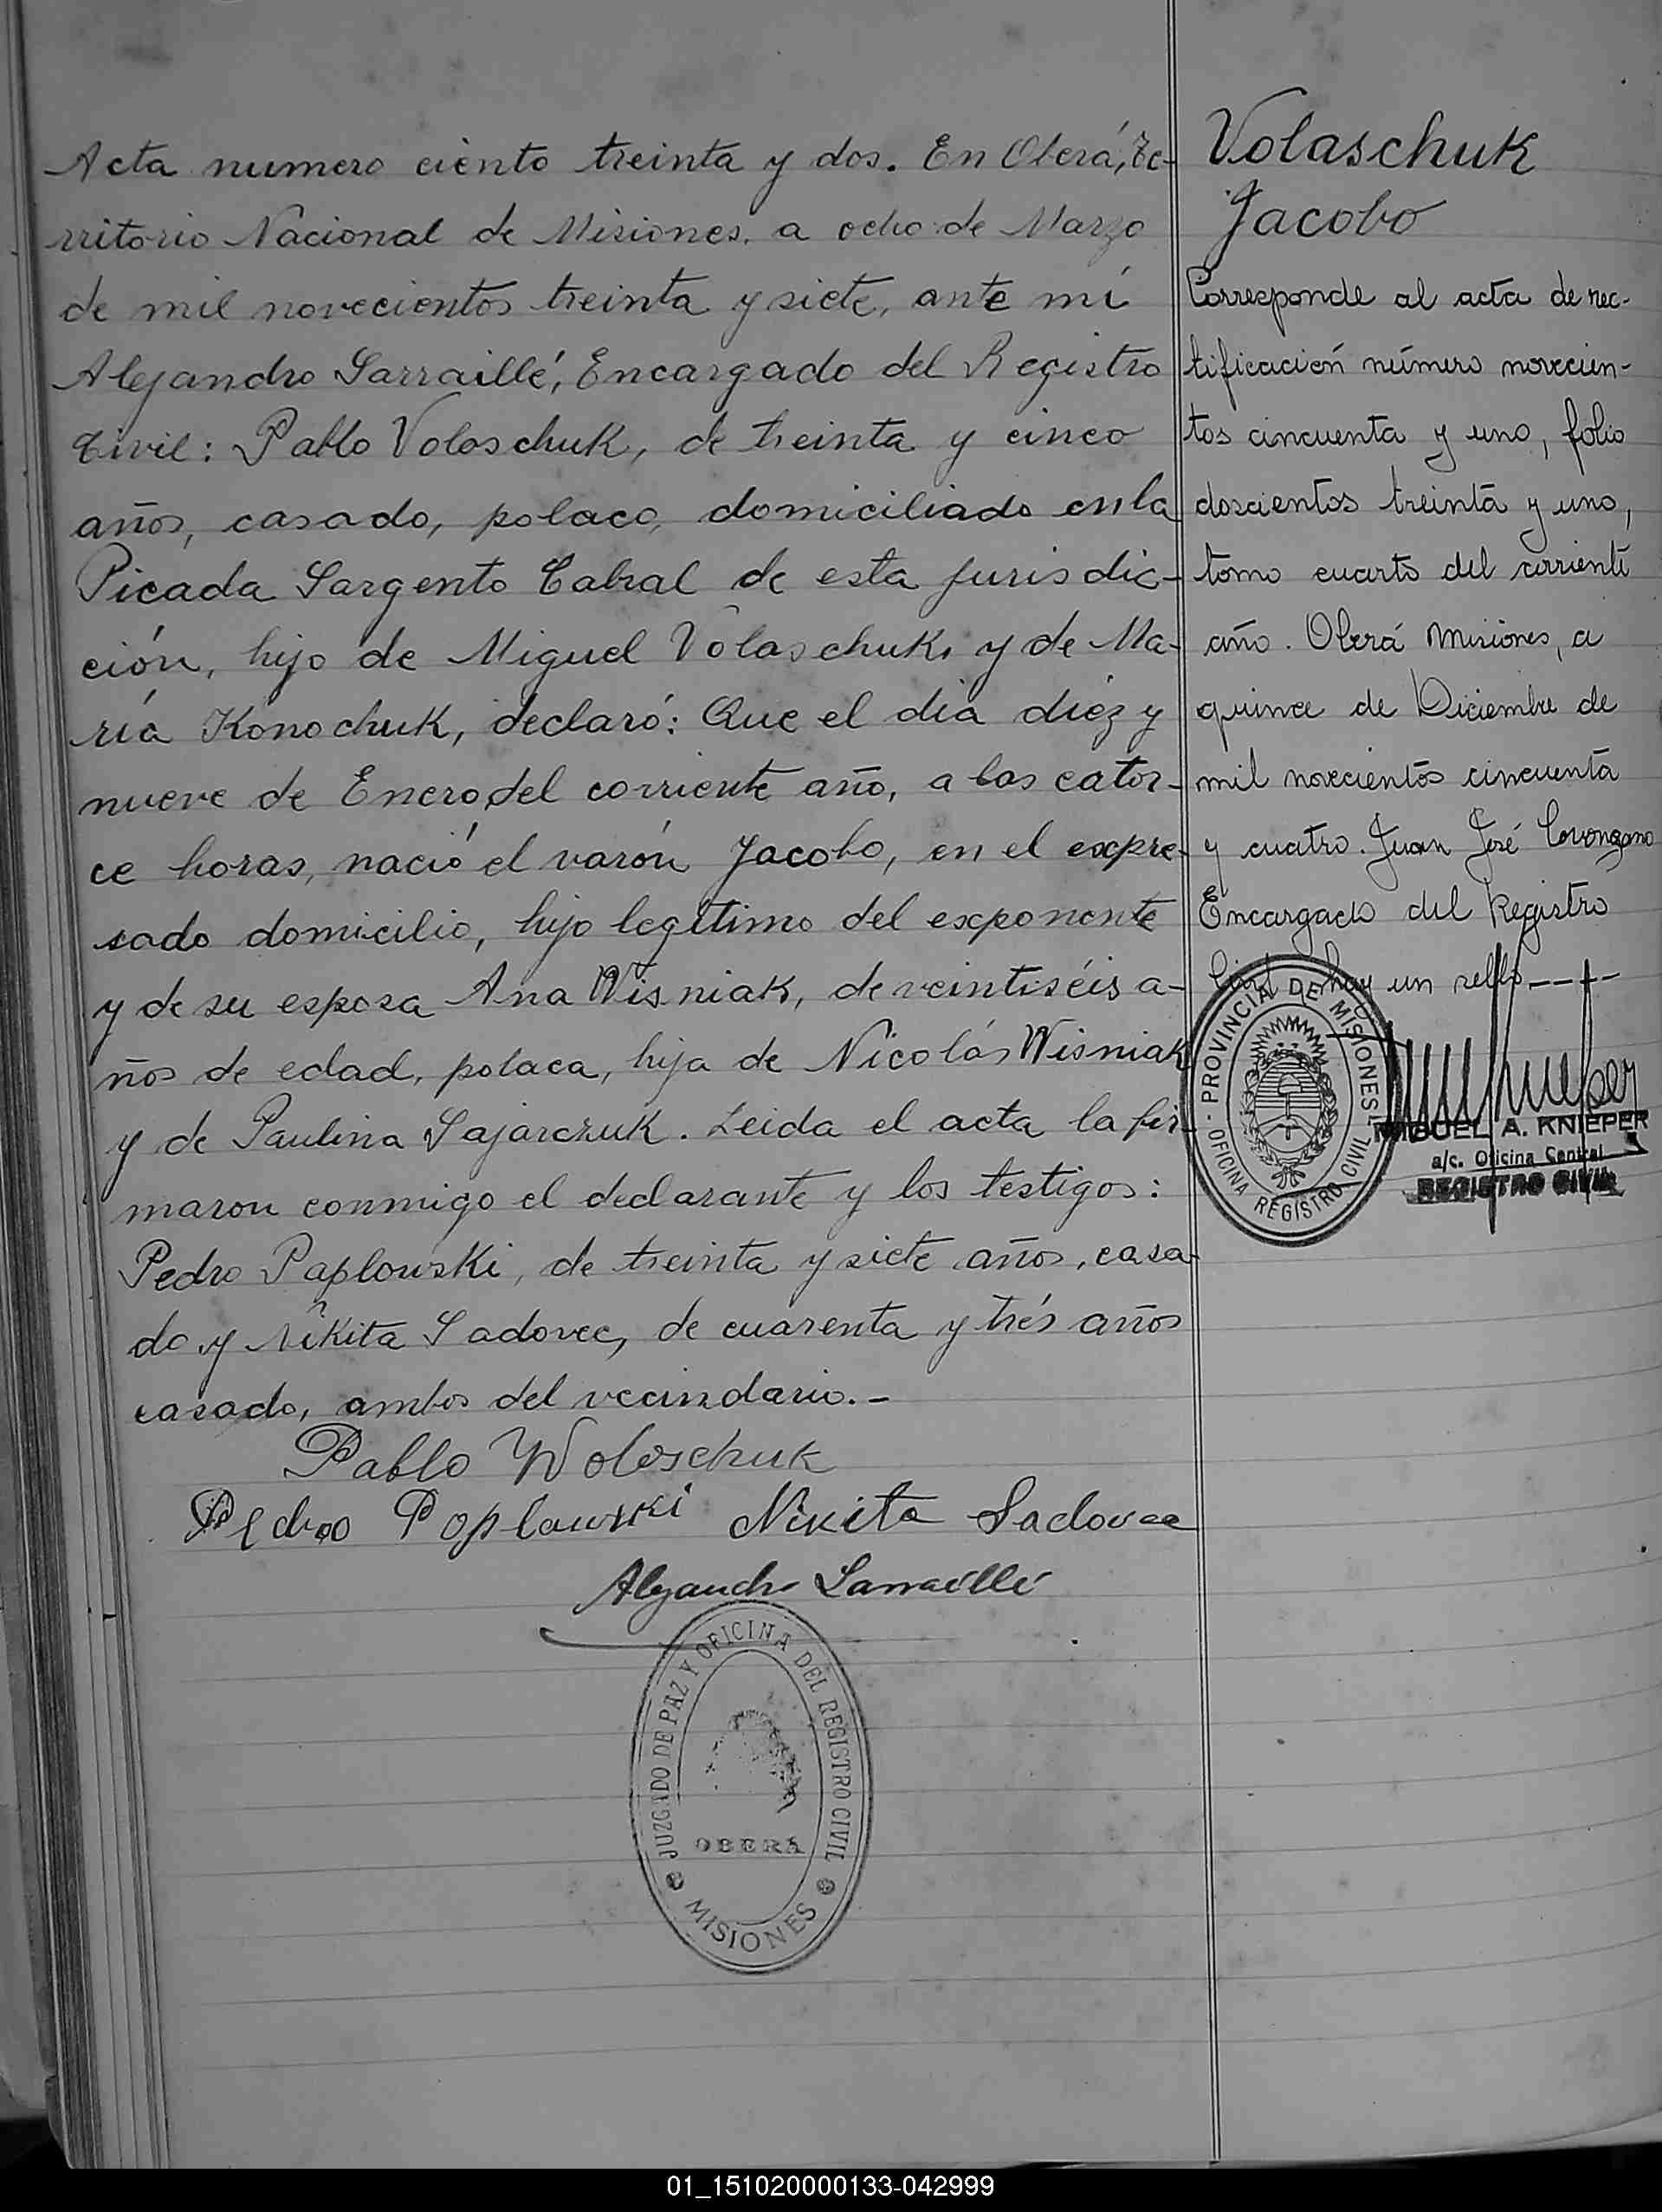 Acta numero ciento treinta y dos. En Oberá, Te-
rritorio Nacional de Misiones, a ocho de Marzo
de mil novecientos treinta y siete, ante mí
Alejandro Larraillé, Encargado del Registro
Civil: Pablo Voloschuk, de treinta y cinco
años, casado, polaco, domiciliado en la
Picada Sargento Cabral de esta jurisdic-
ción, hijo de Miguel Volaschuk, y de Ma-
ría Konochuk, declaró: Que el día diéz y
nueve de Enero del corriente año, a las cator-
ce horas, nació el varón Jacobo, en el expre-
sado domicilio, hijo legítimo del exponente
y de su esposa Ana Wisniak, de veintiséis a-
ños de edad, polaca, hija de Nicolás Wisniak
y de Paulina Sajarczuk. Leida el acta la fir-
maron conmigo el declarante y los testigos:
Pedro Paplowski, de treinta y siete años, casa-
do y Nikita Sadovec, de cuarenta y trés años
casado, ambos del vecindario.-
Pablo Woloschuk
Pedro Poplawski Nikita Sadovec
Alejandro Larraillé
JUZGADO DE PAZ Y OFICINA DEL REGISTRO CIVIL
OBERÁ
MISIONES
Volaschuk
Jacobo
Corresponde al acta de rec-
tificación número novecien-
tos cincuenta y uno, folio
doscientos treinta y uno,
tomo cuarto del corriente
año. Oberá Misiones, a
quince de Diciembre de
mil novecientos cincuenta
y cuatro. Juan José
Encargado del Registro
Civil y hay un sello----
PROVINCIA DE MISIONES
OFICINA REGISTRO CIVIL
MIGUEL A. KNIEPER
a/c. Oficina Central
REGISTRO CIVIL
01_151020000133-042999